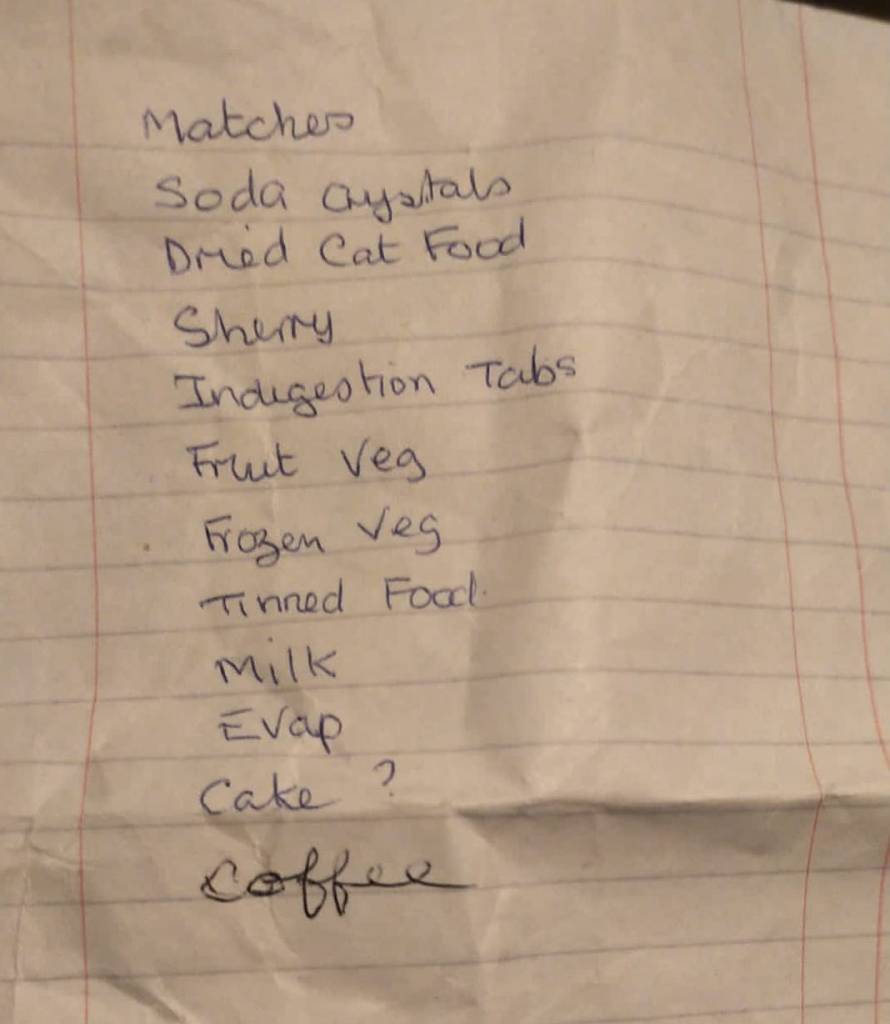 Matches
Soda Crystals
Dried Cat Food
Sherry
Indigestion Tabs
Fruit Veg
Frozen Veg
Tinned Food.
Milk
Evap
Cake ?
Coffee